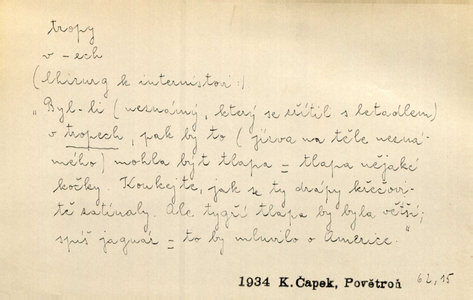 tropy
v -ech
(chirurg k internistovi:)
„Byl-li (neznámý, který se zřítil s letadlem)
v tropech, pak by to (jizva na těle nezná-
mého) mohla být tlapa = tlapa nějaké
kočky. Koukejte, jak se ty drápy křečovi-
tě zatínaly. Ale tygří tlapa by byla větší;
spíš jaguár = to by mluvilo o Americe."
1934 K.Čapek, Povětroň 62,15